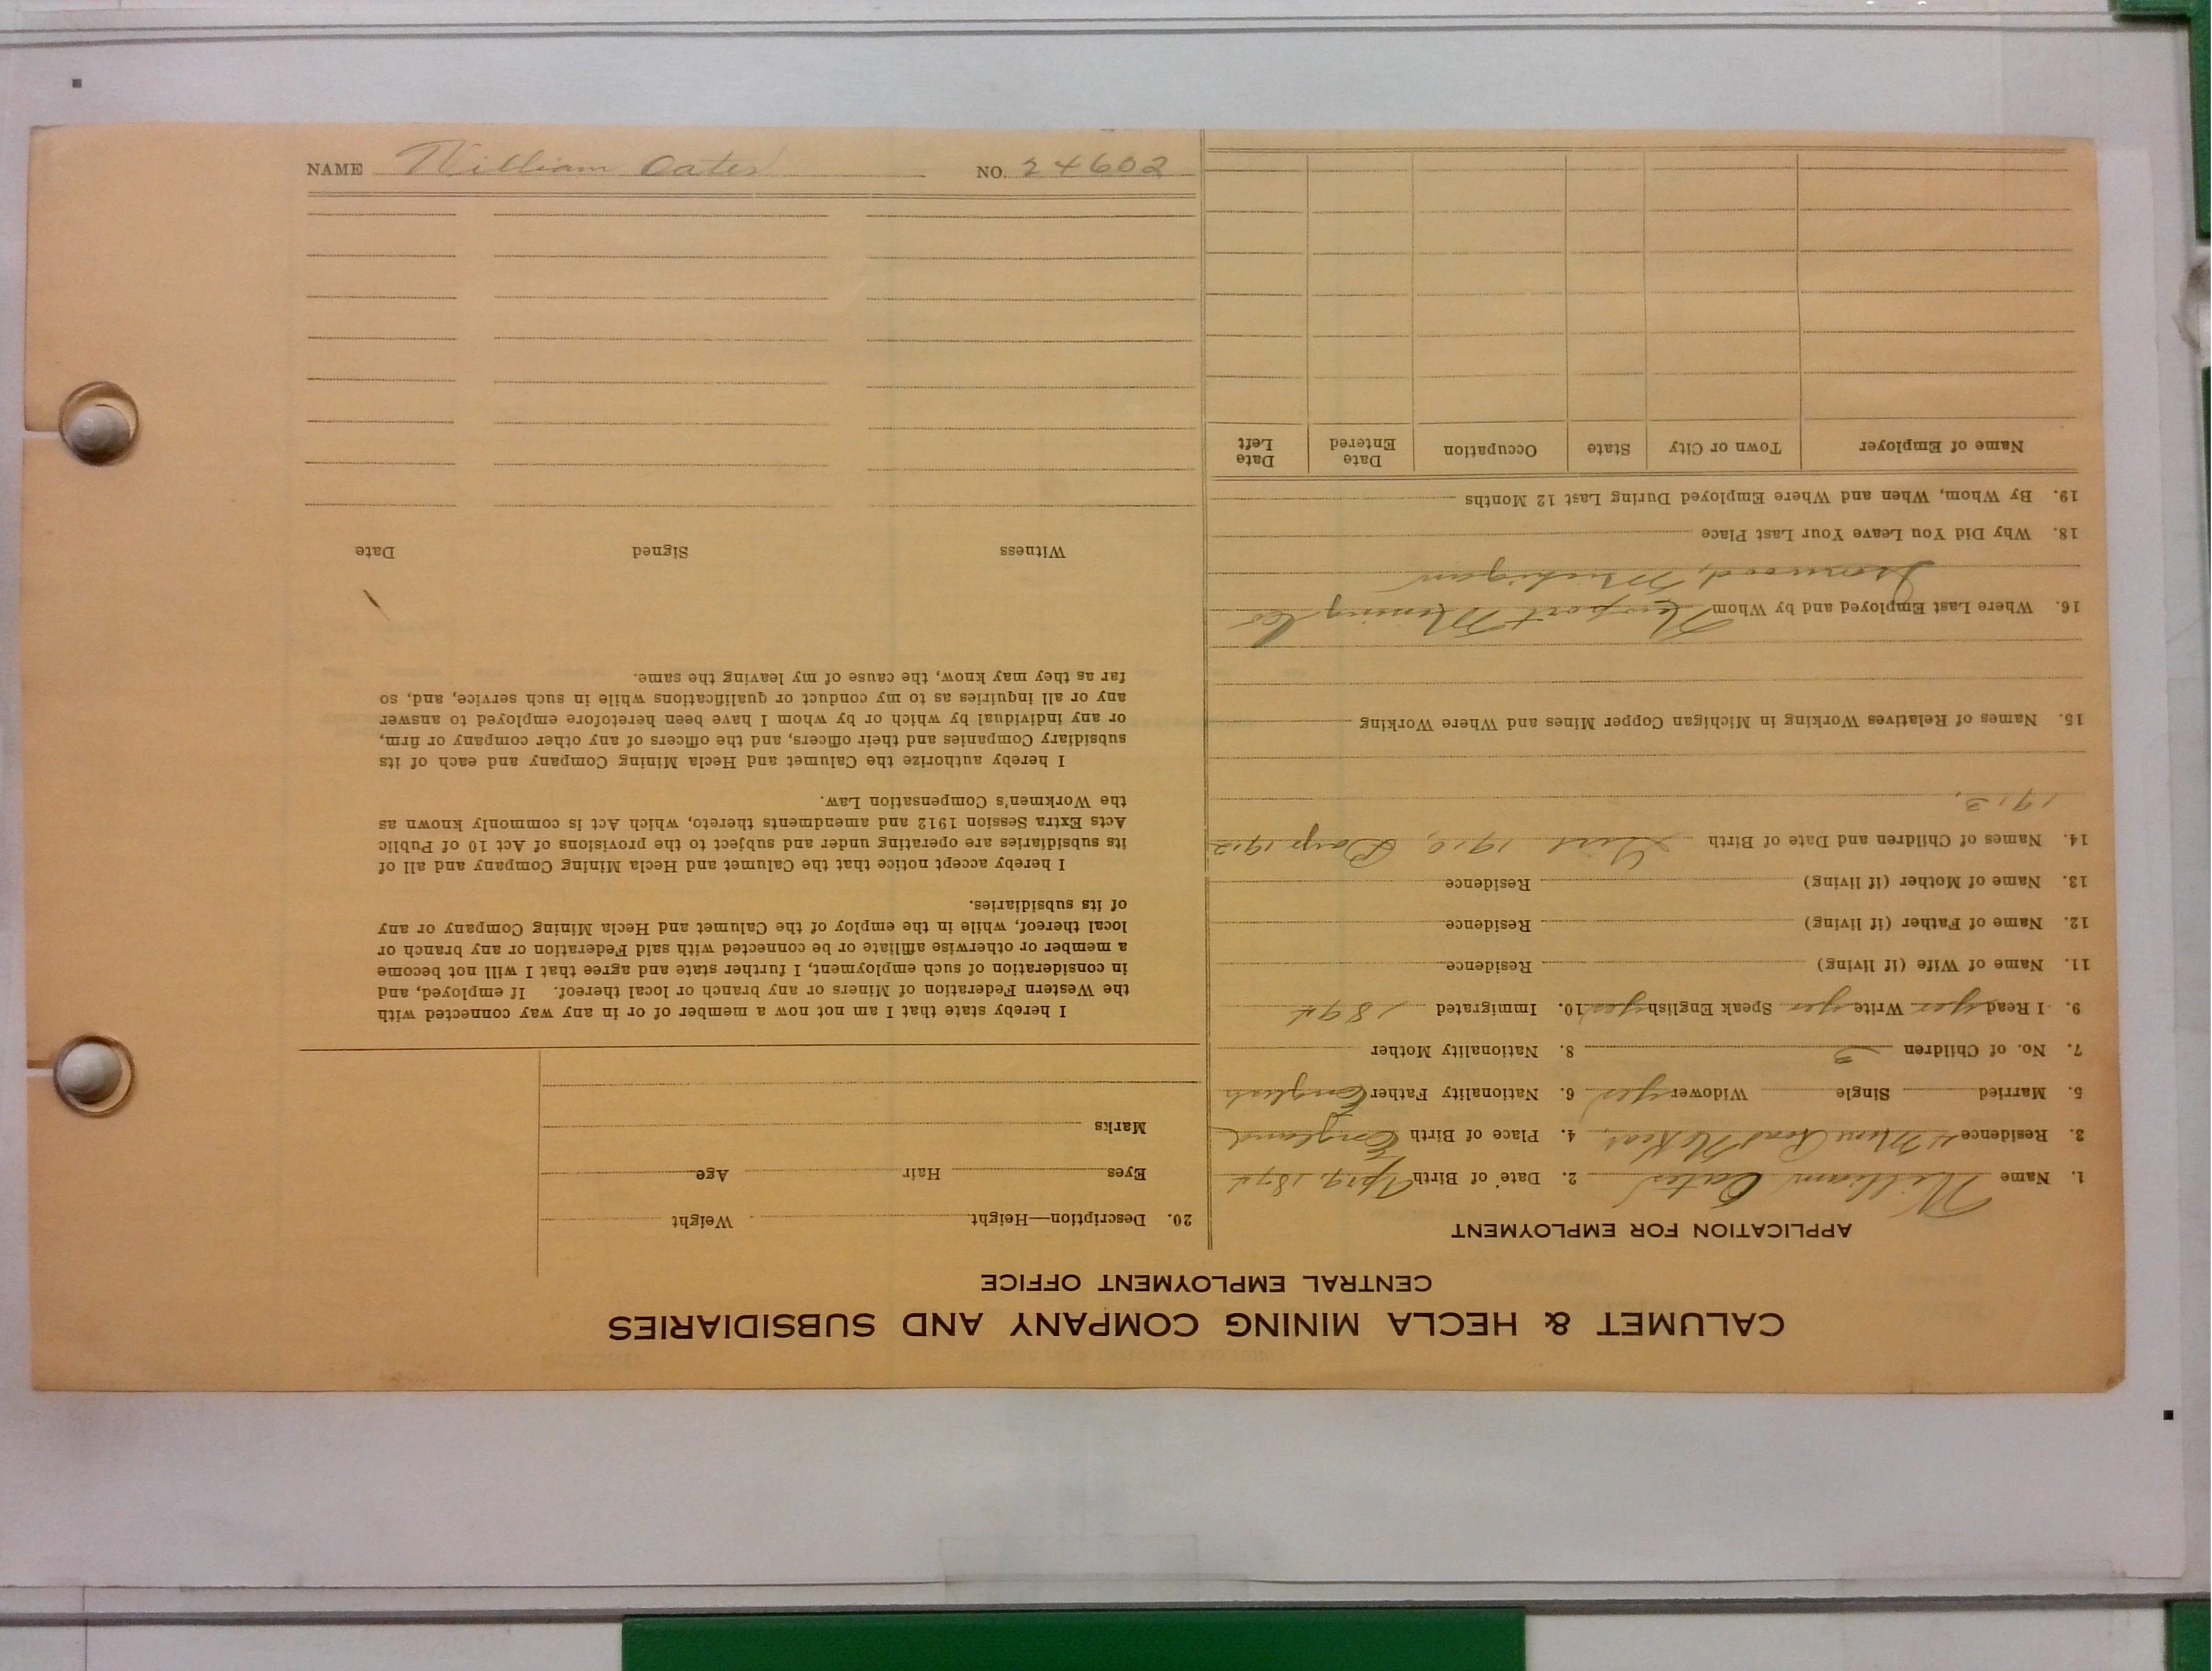 CALUMET & HECLA MINING COMPANY AND SUBSIDIARIES
CENTRAL EMPLOYMENT OFFICE
APPLICATION FOR EMPLOYMENT
1. Name William Oates 2. Date of Birth Apr 9, 1874
3. Residence Mine Road 4. Place of Birth England
5. Married Single Widower yes 6. Nationality Father English
7. No. of Children 3 8. Nationality Mother
9. I Read yes Write yes Speak English yes 10. Immigrated 1894
11. Name of Wife (if living) Residence
12. Name of Father (if living) Residence
13. Name of Mother (if living) Residence
14. Names of Children and Date of Birth Girl 1910, Boys 1912
1913,
15. Names of Relatives Working in Michigan Copper Mines and Where Working
16. Where Last Employed and by Whom Newport Mining Co
Ironwood, Michigan
18. Why Did You Leave Your Last Place
19. By Whom, When and Where Employed During Last 12 Months
Name of Employer Town or City State Occupation Date Entered Date Left
20. Description—Height Weight
Eyes Hair Age
Marks
I hereby state that I am not now a member of or in any way connected with
the Western Federation of Miners or any branch or local thereof. If employed, and
in consideration of such employment, I further state and agree that I will not become
a member or otherwise affiliate or be connected with said Federation or any branch or
local thereof, while in the employ of the Calumet and Hecla Mining Company or any
of its subsidiaries.
I hereby accept notice that the Calumet and Hecla Mining Company and all of
its subsidiaries are operating under and subject to the provisions of Act 10 of Public
Acts Extra Session 1912 and amendments thereto, which Act is commonly known as
the Workmen's Compensation Law.
I hereby authorize the Calumet and Hecla Mining Company and each of its
subsidiary Companies and their officers, and the officers of any other company or firm,
or any individual by which or by whom I have been heretofore employed to answer
any or all inquiries as to my conduct or qualifications while in such service, and, so
far as they may know, the cause of my leaving the same.
Witness Signed Date
NAME William Oates NO. 24602